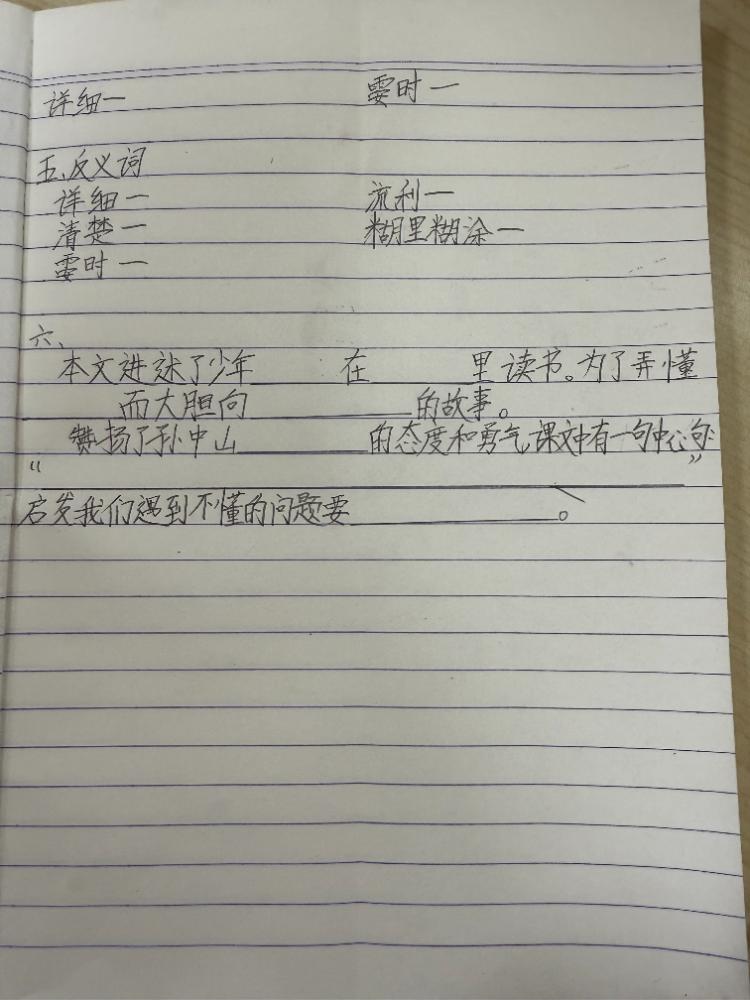 详细一 霎时一
五、反义词
详细一 流利一
清楚一 糊里糊涂一
霎时一
六、
本文进述了少年 在 里读书。为了弄懂
而大胆向 的故事。
赞扬了孙中山 的态度和勇气,课文中有一句中心句:
“ ”
启发我们遇到不懂的问题要 。